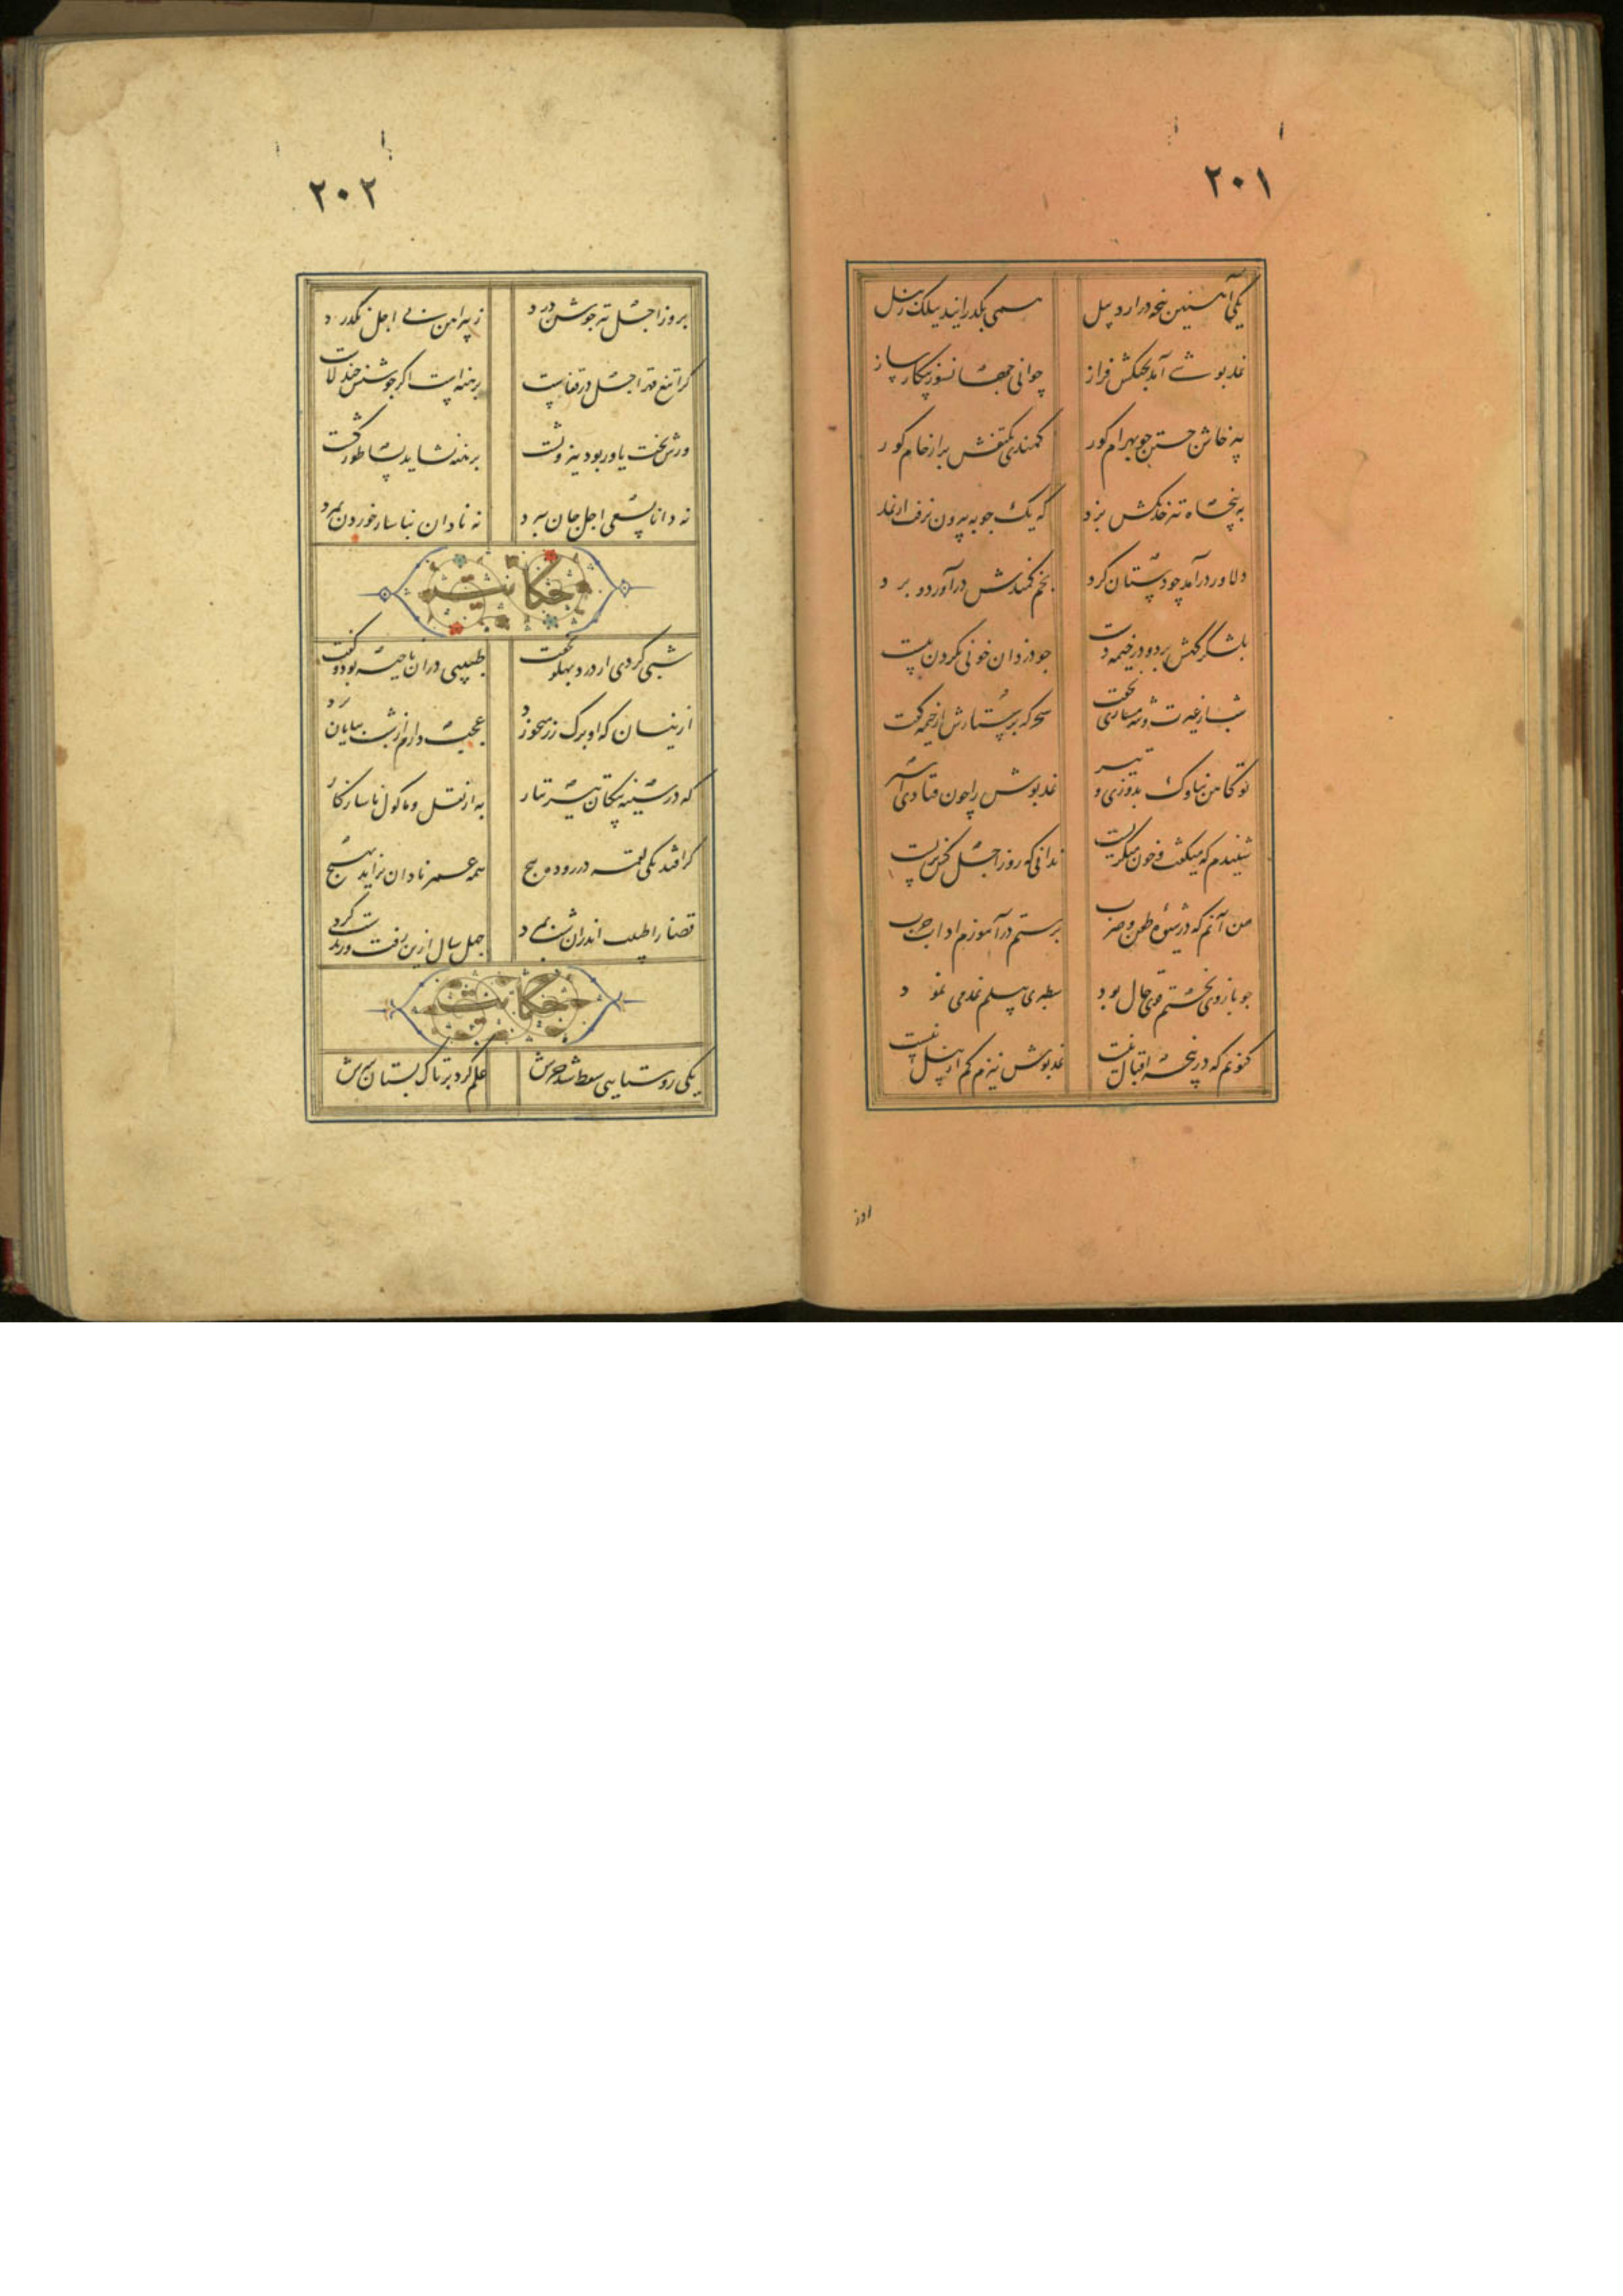 ۲۰۱
یکی آهنین پنجه در اردبیل همی بگذرانید بیلک ز بیل
نمد پوشی آمد بجنگش فراز جوانی جهان سوز پیکار ساز
بپرخاش جستن چو بهرام کور کمندی بکتفش بر از خام کور
به پنجاه تیر خدنکش بزد که یک چوبه بیرون نرفت از نمد
دلاور درآمد چو دستان کرد بخم کمندش درآورد و برد
بلشکرکهش برد و در خیمه دست چو دزدان خونی بکردن ببست
شب از غیرت و شرمساری نخفت سحرکه پرستارش از خیمه کفت
تو کاهن بناوک بدوزی و تیر نمدپوش را چون فتادی اسیر
شنیدم که میکفت و خون میکریست ندانی که روز اجل کس نزیست
من آنم که در شیوه طعن و ضرب برستم درآموزم اداب حرب
چو بازوی بختم قوی حال بود سطبری بیلم نمد می نمود
کنونم که در پنجه اقبال نیست نمد پیش تیرم کم از بیل نیست
۲۰۲
بروز اجل نیزه جوشن درد ز پیراهن بی اجل نکذرد
کرا تیغ قهر اجل در قفاست برهنه است اکر جوشنش چند لاست
ورش بخت یاور بود پشت برهنه نشاید بساطور کشت
نه دانا بسعی اجل جان ببرد نه نادان بناساز خوردن بمرد
حکایت
شبی کردی از درد پهلو نخفت طبیبی دران ناحیت بود و کفت
ازینسان که او برک رز میخورد عجب دارم ار شب بپایان برد
که در سینه پیکان تیر تتار به از نقل ماکول ناسازکار
کر افتد بیک لقمه در روده پیچ همه عمر نادان برآید بهیچ
قضا را طبیب اندران شب بمرد چهل سال ازین رفت و زندست کرد
حکایت
یکی روستایی سقط شد خرش علم کرد بر تاک بستان سرش